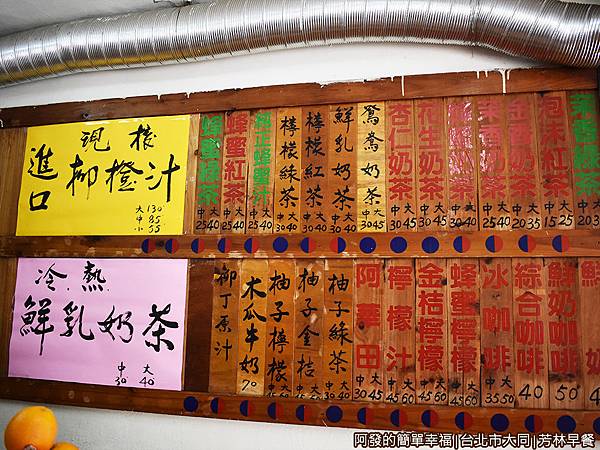 現榨
進口
柳橙汁
大 130
中 85
小 55
蜂蜜綠茶 中大 25 40
蜂蜜紅茶 中大 25 40
純正蜂蜜汁 中大 25 40
檸檬綠茶 中大 30 40
檸檬紅茶 中大 30 40
鮮乳奶茶 中大 30 40
鴛鴦奶茶 中大 30 45
杏仁奶茶 中大 30 40
花生奶茶 中大 30 40
奶茶 中大 30 40
茉香奶茶 中大 25 40
奶茶 中大 20 35
泡沫紅茶 中大 15 25
綠茶 中大
冷.熱.
鮮乳奶茶
中 大
30 40
柳丁原汁
木瓜牛奶 70
柚子檸檬 中大 30 40
柚子金桔 中大
柚子綠茶 中大 30 40
阿華田 中大 30 45
檸檬汁 中大 45 60
金桔檸檬 中大 45 60
蜂蜜檸檬 中大 45 60
冰咖啡 中大 35 50
綜合咖啡 40
鮮奶咖啡 50
鮮奶
阿發的簡單幸福|台北市大同|芳林早餐